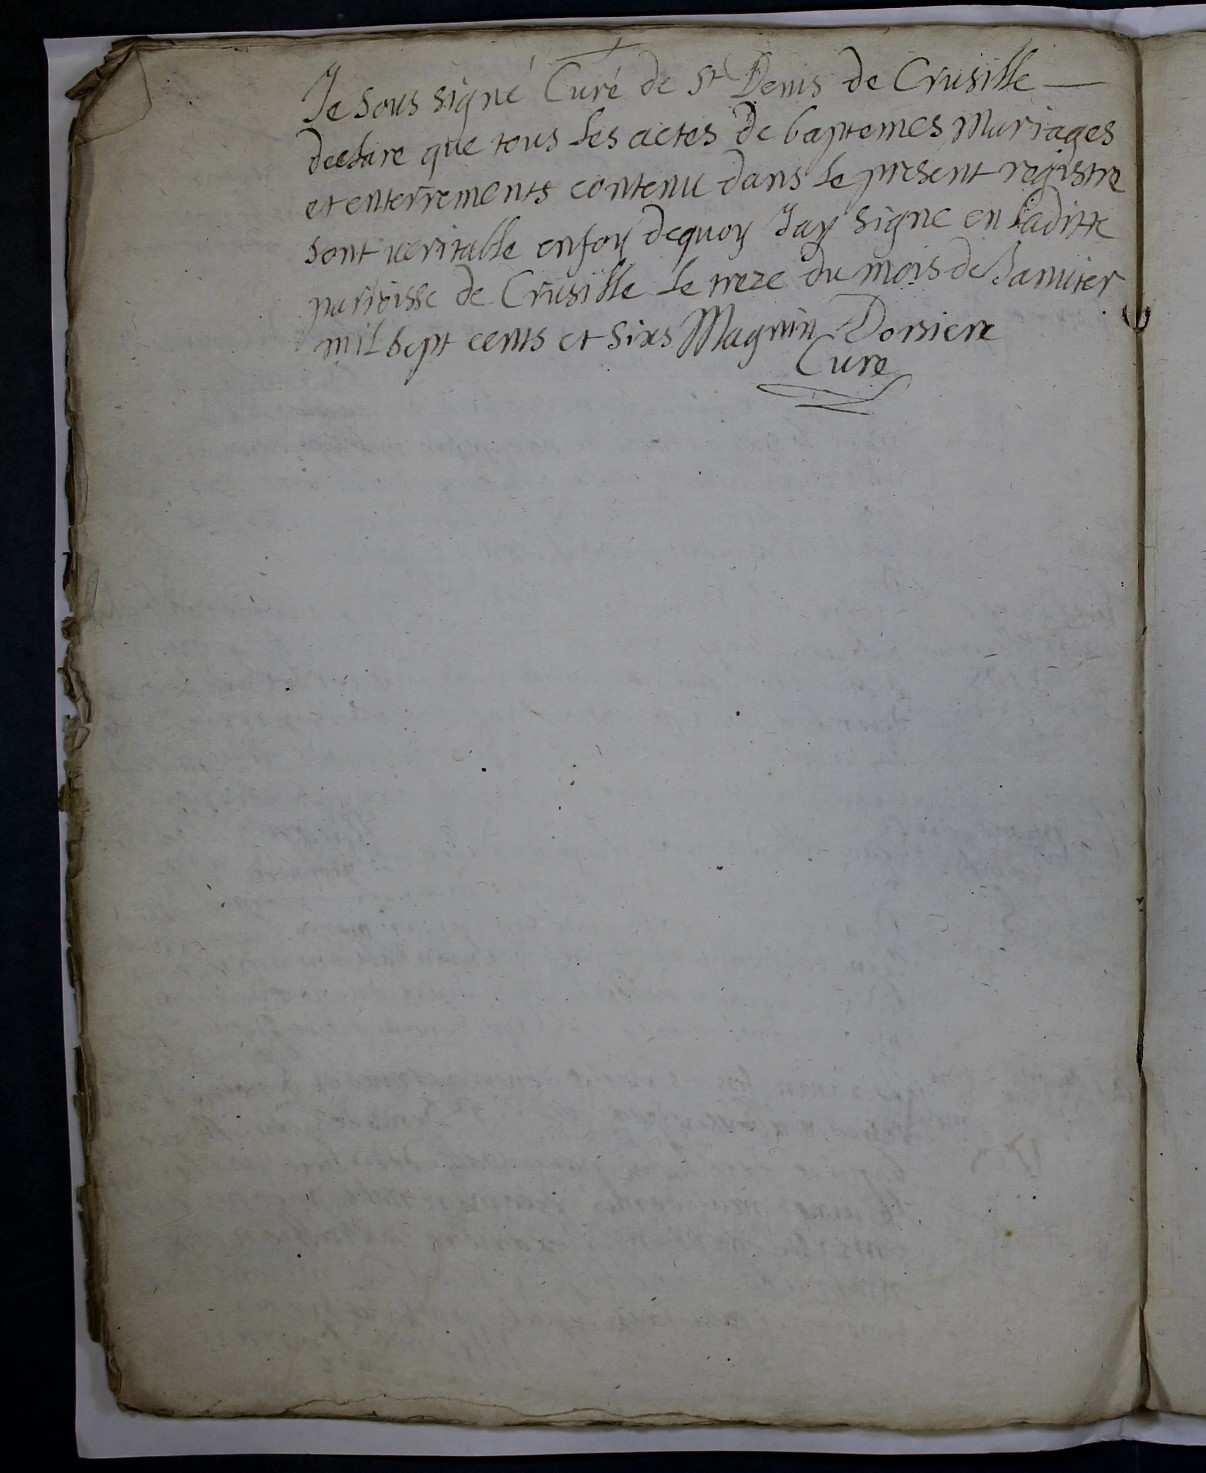 Je sous signé Curé de St Denis de Crusille
declare que tous les actes de baptemes Mariages
et enterrements contenu dans le present registre
sont veritable en foy dequoy Jay signe en laditte
parroisse de Crusille le treze du mois de Janvier
mil sept cents et sixs Magnin Dorsiere
Curé